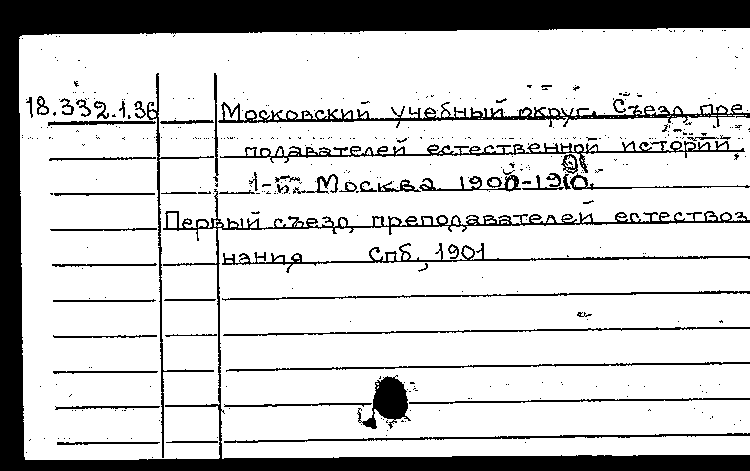 18.332.1.36 Московский учебный округ. Съезд пре-
подавателей естественной истории.
1-й. Москва 1900-1901.
Первый съезд преподавателей естествоз-
нания Спб., 1901